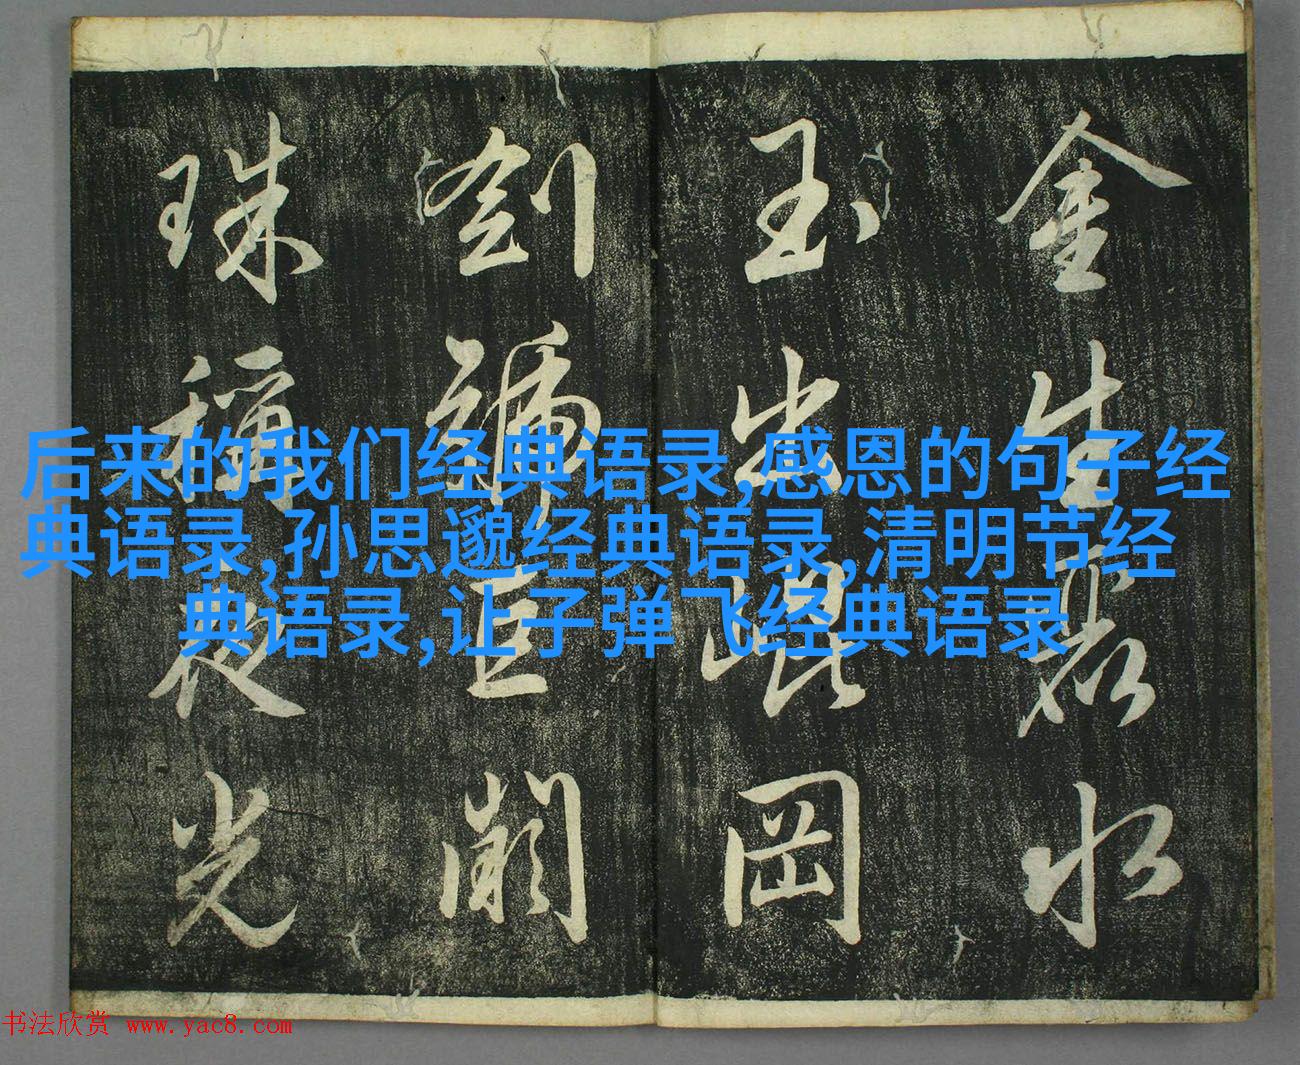 金生麗水
玉出崐岡
劍號巨闕
珠稱夜光
后来的我们经典语录,感恩的句子经
典语录,孙思邈经典语录,清明节经
典语录,让子弹飞经典语录
书法欣赏 www.yac8.com